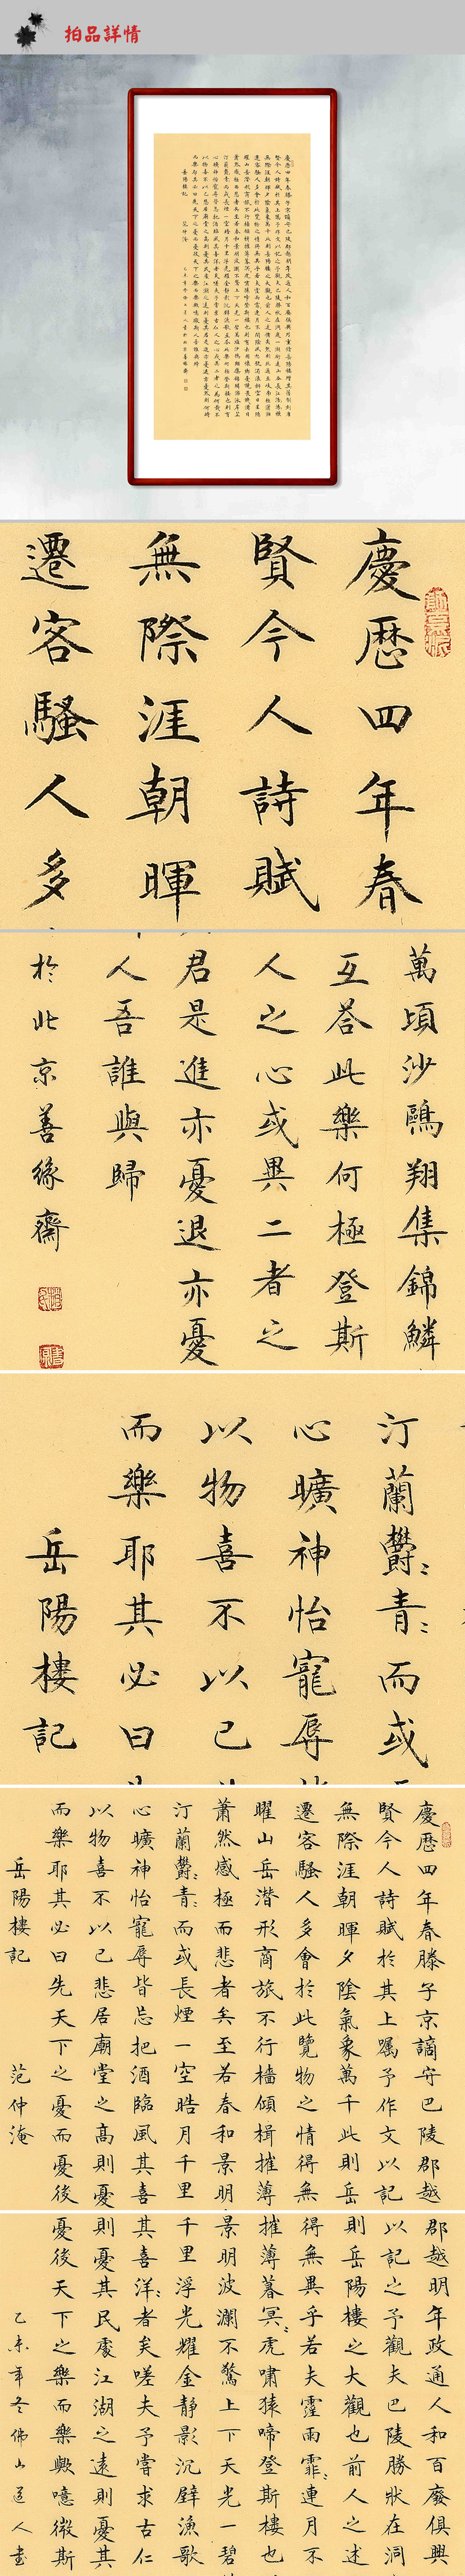 拍品詳情
慶曆四年春
賢今人詩賦
無際涯朝暉
遷客騷人多
萬頃沙鷗翔集錦鱗
互荅此樂何極登斯
人之心或異二者之
君是進亦憂退亦憂
人吾誰與歸
於北京善緣齋
汀蘭欝〻青〻而或
心曠神怡寵辱
以物喜不以己
而樂耶其必曰
岳陽樓記
慶曆四年春滕子京謫守巴陵郡越
賢今人詩賦於其上屬予作文以記
無際涯朝暉夕陰氣象萬千此則岳
遷客騷人多會於此覽物之情得無
曜山岳潛形商旅不行檣傾楫摧薄
蕭然感極而悲者矣至若春和景明
汀蘭欝〻青〻而或長煙一空皓月千里
心曠神怡寵辱皆忘把酒臨風其喜
以物喜不以己悲居廟堂之高則憂
而樂耶其必曰先天下之憂而憂後
岳陽樓記 范仲淹
郡越明年政通人和百廢俱興
以記之予觀夫巴陵勝狀在洞
則岳陽樓之大觀也前人之述
得無異乎若夫霪雨霏〻連月不
摧薄暮冥〻虎嘯猿啼登斯樓也
景明波瀾不驚上下天光一碧
千里浮光耀金靜影沉璧漁歌
其喜洋〻者矣嗟夫予嘗求古仁
則憂其民處江湖之遠則憂其
憂後天下之樂而樂歟噫微斯
乙未年冬佛山道人書